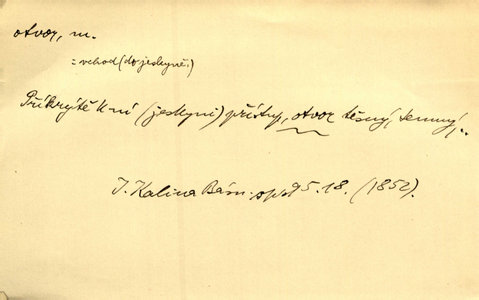 otvor, m.
= vchod (do jeskyně.)
Příkrýtě k ní (jeskyni) přístup, otvor těsný, temný,..
J. Kalina Básn. spisy 5. 18. (1852).